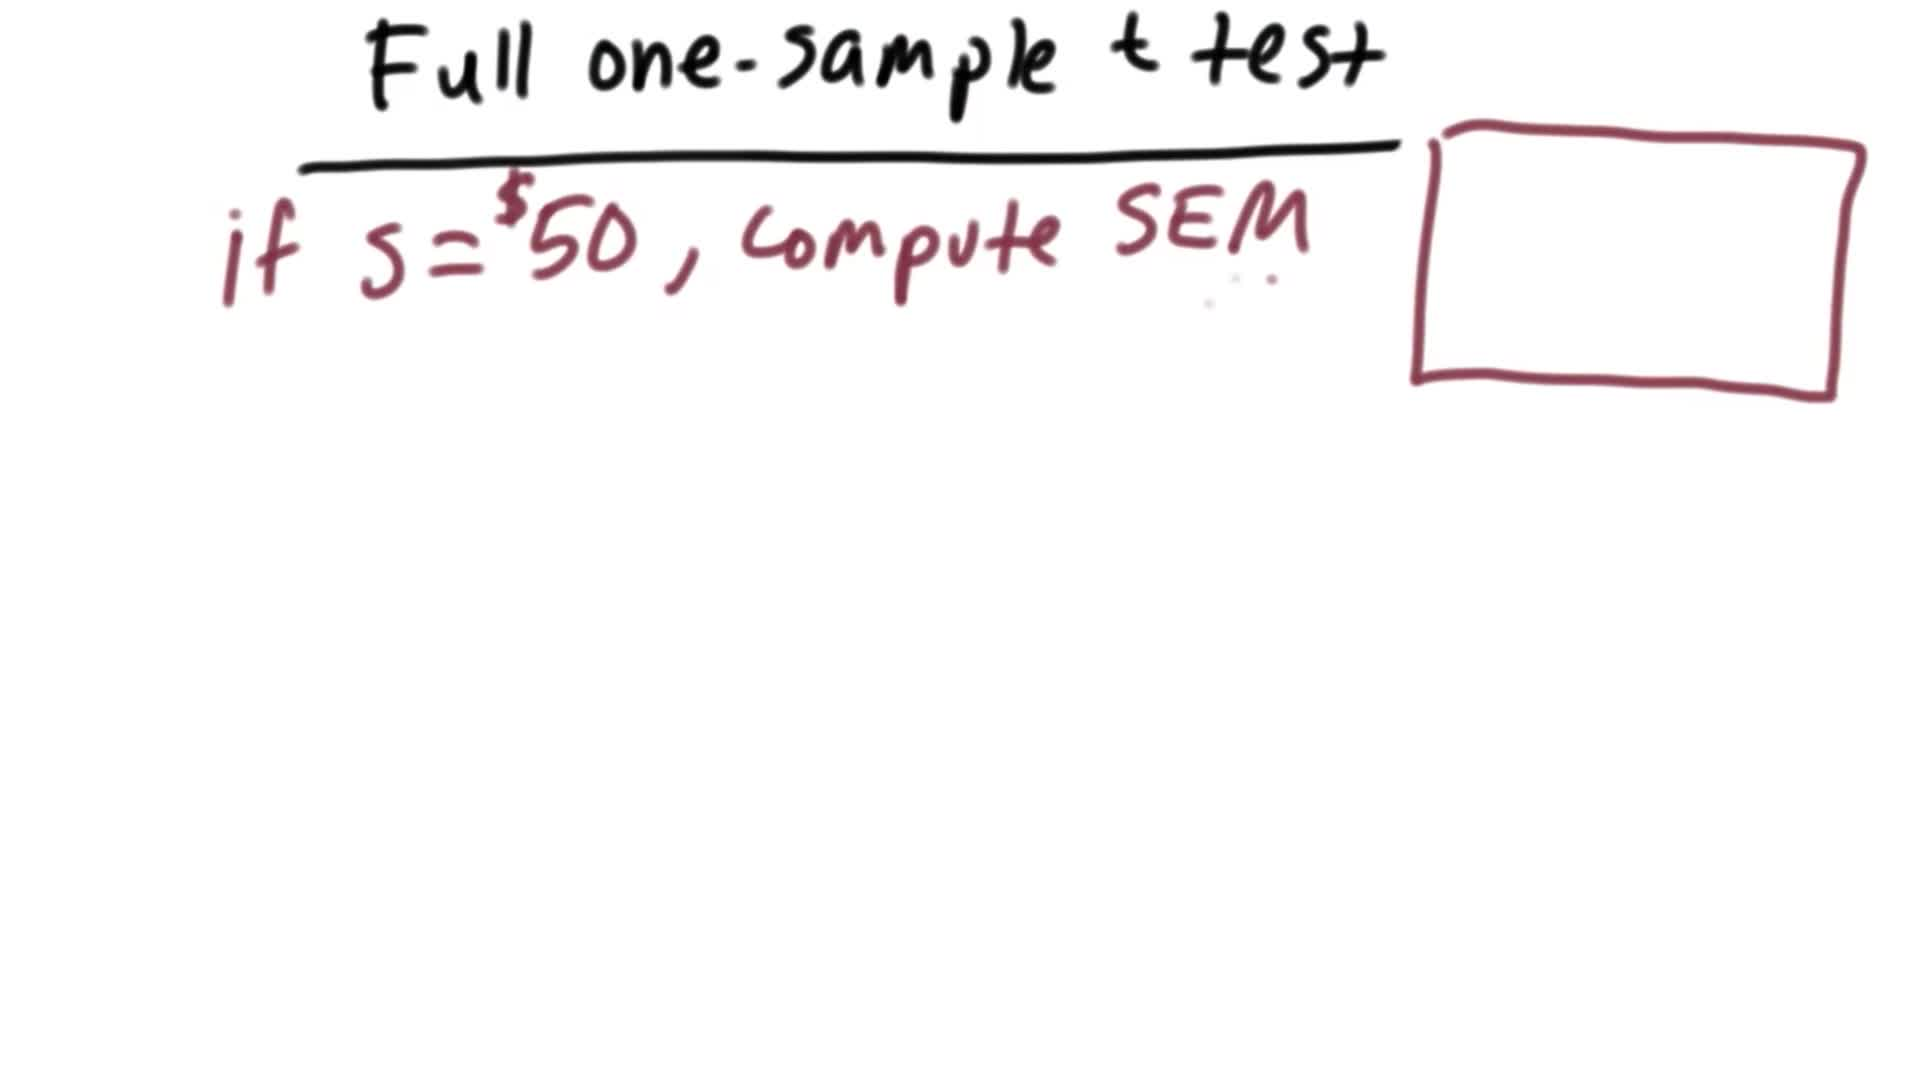 Full one-sample t test
if s = $50, compute SEM